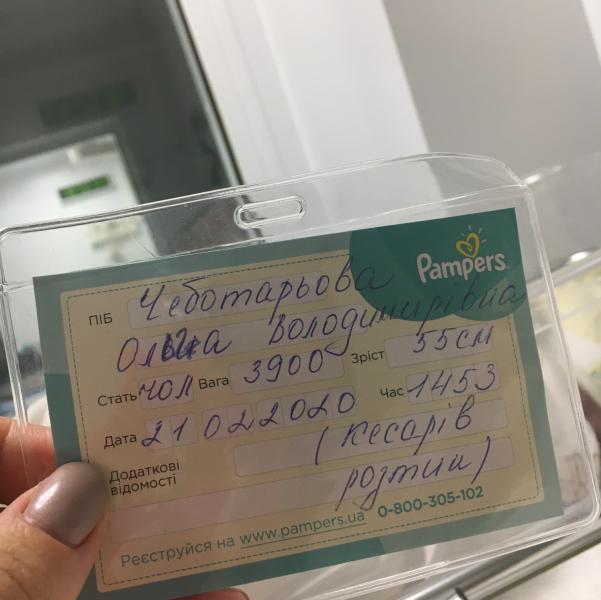 Pampers
ПІБ Чеботарьова
Ольга Володимирівна
Стать чол Вага 3900 Зріст 55см
Дата 21 02 2020 Час 1453
Додаткові відомості (кесарів
розтин)
Реєструйся на www.pampers.ua 0-800-305-102